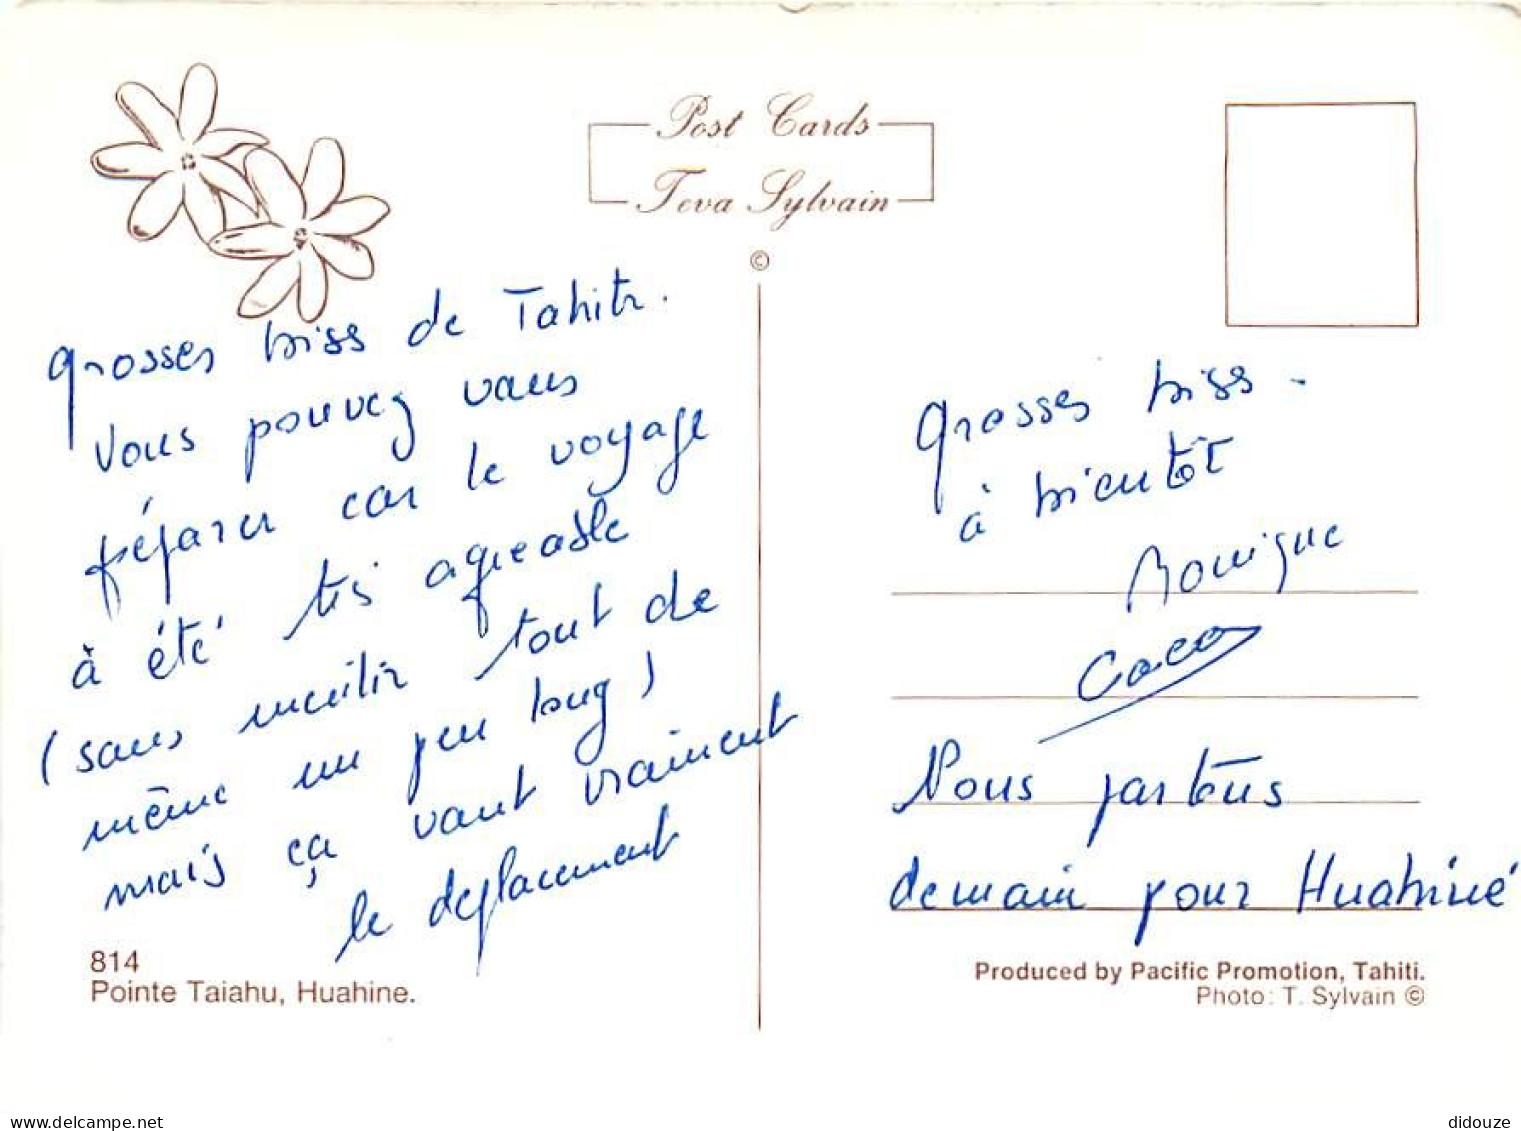 Post Cards
Teva Sylvain
©
grosses biss de Tahiti.
Vous pouvez vous
préparer car le voyage
à été très agréable
(sans mentir tout de
même un peu long)
mais ça vaut vraiment
le deplacement
814
Pointe Taiahu, Huahine.
grosses biss -
à bientôt
Monique
Coco
Nous partons
demain pour Huahiné
Produced by Pacific Promotion, Tahiti.
Photo: T. Sylvain ©
didouze